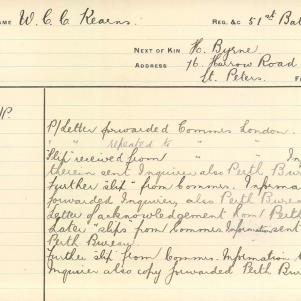 NAME W. C. C. Kearns. REG. &C 51st Bat
NEXT OF KIN H. Byrne
ADDRESS 76. Harrow Road
St. Peters.
P/Letter forwarded Commrs London.
" " repeated to " "
"Slip" received from " " In
therein sent Inquirer also Perth Bur
Further "slip" from Commrs. Informa
forwarded Inquirer, also Perth Bureau
Letter of acknowledgement from Perth
Later "slips from Commrs Information sent
Perth Bureau.
Further slip from Commrs. Information t
Inquirer also copy forwarded Perth Bu